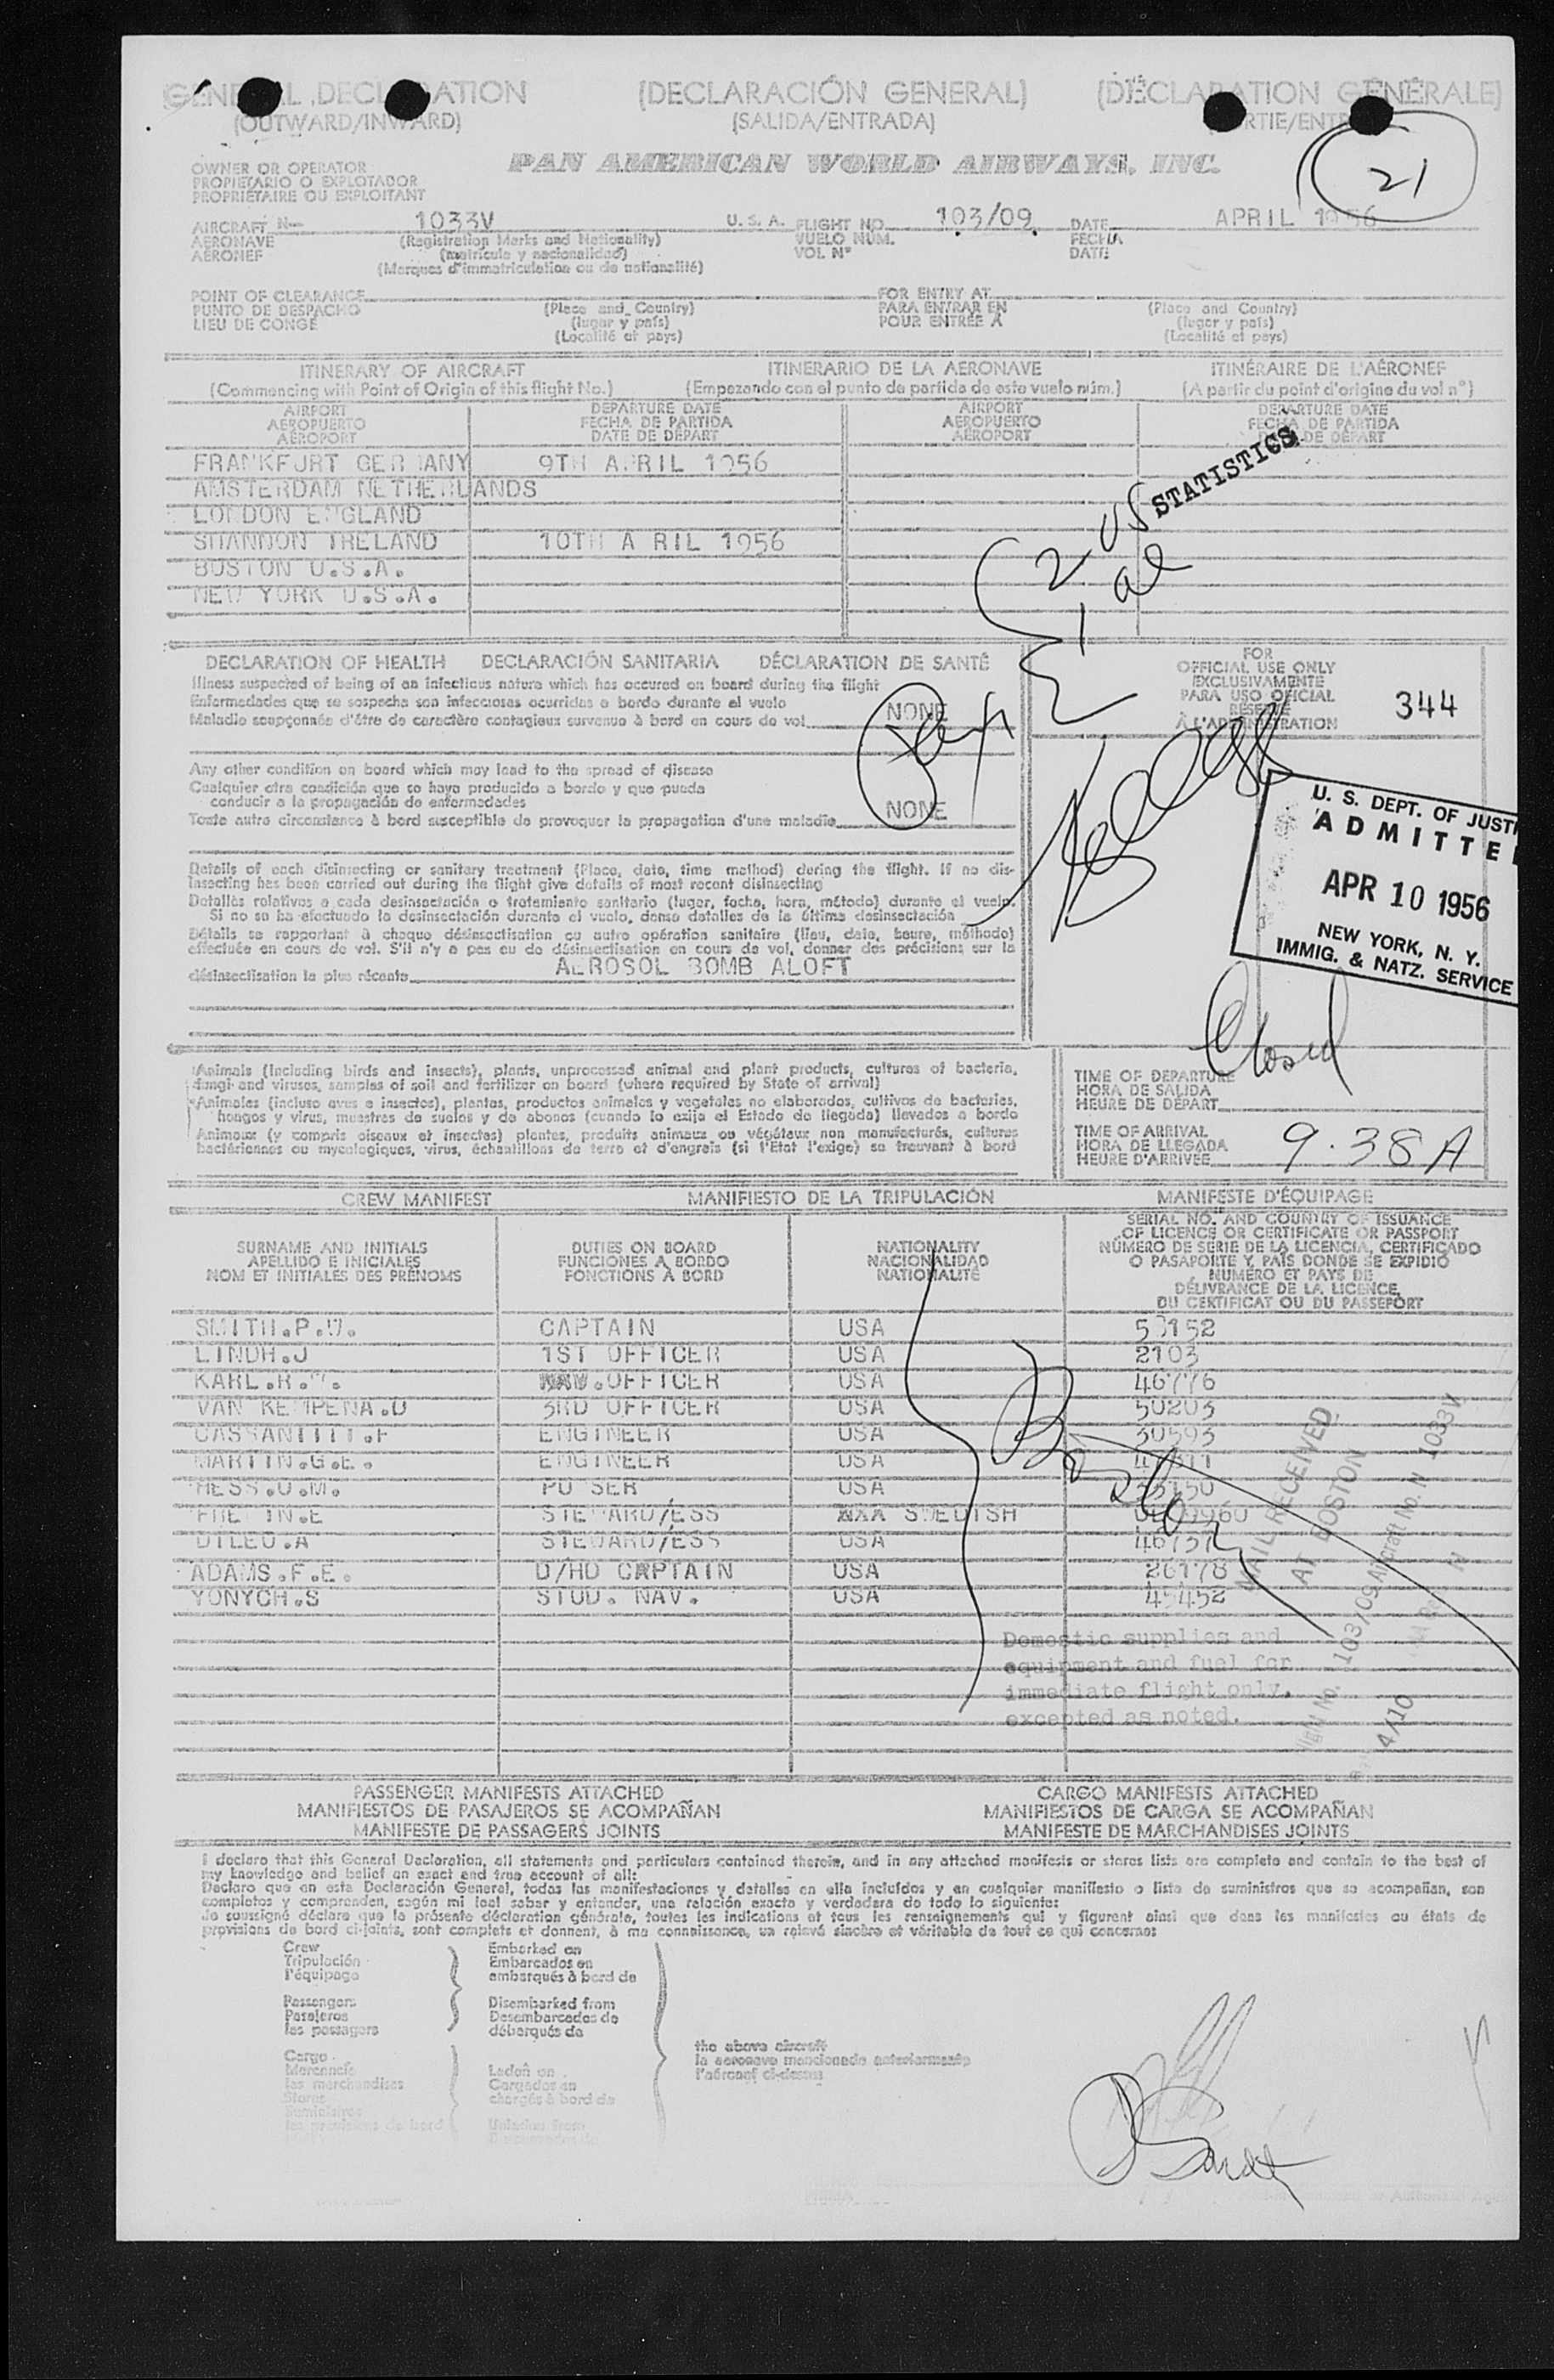 GENERAL DECLARATION (DECLARACIÓN GENERAL) (DÉCLARATION GÉNÉRALE)
(OUTWARD/INWARD) (SALIDA/ENTRADA) (SORTIE/ENTRÉE)
21
PAN AMERICAN WORLD AIRWAYS, INC.
OWNER OR OPERATOR
PROPIETARIO O EXPLOTADOR
PROPRIÉTAIRE OU EXPLOITANT
AIRCRAFT N- 1033V U. S. A. FLIGHT NO. 103/09 DATE APRIL 1956
AERONAVE (Registration Marks and Nationality) VUELO NÚM. FECHA
AÉRONEF (matrícula y nacionalidad) VOL Nº DATE
(Marques d'immatriculation ou de nationalité)
POINT OF CLEARANCE FOR ENTRY AT
PUNTO DE DESPACHO (Place and Country) PARA ENTRAR EN (Place and Country)
LIEU DE CONGÉ (lugar y país) POUR ENTRÉE À (lugar y país)
(Localité et pays) (Localité et pays)
ITINERARY OF AIRCRAFT ITINERARIO DE LA AERONAVE ITINÉRAIRE DE L'AÉRONEF
(Commencing with Point of Origin of this flight No.) (Empezando con el punto de partida de este vuelo núm.) (A partir du point d'origine du vol nº)
AIRPORT DEPARTURE DATE AIRPORT DEPARTURE DATE
AEROPUERTO FECHA DE PARTIDA AEROPUERTO FECHA DE PARTIDA
AÉROPORT DATE DE DÉPART AÉROPORT DE DÉPART
FRANKFURT GERMANY 9TH APRIL 1956
AMSTERDAM NETHERLANDS
LONDON ENGLAND
SHANNON IRELAND 10TH A RIL 1956
BOSTON U.S.A.
NEW YORK U.S.A.
STATISTICS
2 US
1 al
DECLARATION OF HEALTH DECLARACIÓN SANITARIA DÉCLARATION DE SANTÉ
Illness suspected of being of an infectious nature which has occured on board during the flight
Enfermedades que se sospecha son infecciosas ocurridas a bordo durante el vuelo
Maladie soupçonnée d'être de caractère contagieux survenue à bord en cours de vol NONE
Any other condition on board which may lead to the spread of disease
Cualquier otra condición que se haya producido a bordo y que pueda
conducir a la propagación de enfermedades
Toute autre circonstance à bord susceptible de provoquer la propagation d'une maladie NONE
Details of each disinsecting or sanitary treatment (Place, date, time method) during the flight. If no dis-
insecting has been carried out during the flight give details of most recent disinsecting
Detalles relativos a cada desinsectación o tratamiento sanitario (lugar, fecha, hora, método) durante el vuelo.
Si no se ha efectuado la desinsectación durante el vuelo, dense detalles de la última desinsectación
Détails se rapportant à chaque désinsectisation ou autre opération sanitaire (lieu, date, heure, méthode)
effectuée en cours de vol. S'il n'y a pas eu de désinsectisation en cours de vol, donner des précisions sur la
désinsectisation la plus récente AEROSOL BOMB ALOFT
FOR
OFFICIAL USE ONLY
EXCLUSIVAMENTE
PARA USO OFICIAL
RÉSERVÉ
À L'ADMINISTRATION
344
U. S. DEPT. OF JUSTI
ADMITTE
APR 10 1956
NEW YORK, N. Y.
IMMIG. & NATZ. SERVICE
Closed
Animals (including birds and insects), plants, unprocessed animal and plant products, cultures of bacteria,
fungi and viruses, samples of soil and fertilizer on board (where required by State of arrival)
Animales (incluso aves e insectos), plantas, productos animales y vegetales no elaborados, cultivos de bacterias,
hongos y virus, muestras de suelos y de abonos (cuando lo exija el Estado de llegada) llevados a bordo
Animaux (y compris oiseaux et insectes) plantes, produits animaux ou végétaux non manufacturés, cultures
bactériennes ou mycologiques, virus, échantillons de terre et d'engrais (si l'État l'exige) se trouvant à bord
TIME OF DEPARTURE
HORA DE SALIDA
HEURE DE DÉPART
TIME OF ARRIVAL
HORA DE LLEGADA
HEURE D'ARRIVÉE 9.38A
CREW MANIFEST MANIFIESTO DE LA TRIPULACIÓN MANIFESTE D'ÉQUIPAGE
SURNAME AND INITIALS
APELLIDO E INICIALES
NOM ET INITIALES DES PRÉNOMS
DUTIES ON BOARD
FUNCIONES A BORDO
FONCTIONS À BORD
NATIONALITY
NACIONALIDAD
NATIONALITÉ
SERIAL NO. AND COUNTRY OF ISSUANCE
OF LICENCE OR CERTIFICATE OR PASSPORT
NÚMERO DE SERIE DE LA LICENCIA, CERTIFICADO
O PASAPORTE Y PAÍS DONDE SE EXPIDIÓ
NUMÉRO ET PAYS DE
DÉLIVRANCE DE LA LICENCE,
DU CERTIFICAT OU DU PASSEPORT
SMITH.P.W. CAPTAIN USA 53152
LINDH.J 1ST OFFICER USA 2103
KARL.R. NAV.OFFICER USA 46776
VAN KEMPENA.D 3RD OFFICER USA 50203
CASSANTITI.F ENGINEER USA 30593
MARTIN.G.E. ENGINEER USA
HESS.O.M. PU SER USA
STEWARD/ESS SWEDISH
DILEO.A STEWARD/ESS USA
ADAMS.F.E. D/HD CAPTAIN USA 26178
YONYCH.S STUD. NAV. USA 45452
Boston
MAIL RECEIVED
AT BOSTON
103/09 Aircraft No. N 1033V
4/10
Domestic supplies and
equipment and fuel for
immediate flight only,
excepted as noted.
PASSENGER MANIFESTS ATTACHED CARGO MANIFESTS ATTACHED
MANIFIESTOS DE PASAJEROS SE ACOMPAÑAN MANIFIESTOS DE CARGA SE ACOMPAÑAN
MANIFESTE DE PASSAGERS JOINTS MANIFESTE DE MARCHANDISES JOINTS
I declare that this General Declaration, all statements and particulars contained therein, and in any attached manifests or stores lists are complete and contain to the best of
my knowledge and belief an exact and true account of all:
Declaro que en esta Declaración General, todas las manifestaciones y detalles en ella incluídos y en cualquier manifiesto o lista de suministros que se acompañan, son
completos y comprenden, según mi leal saber y entender, una relación exacta y verdadera de todo lo siguiente:
Je soussigné déclare que la présente déclaration générale, toutes les indications et tous les renseignements qui y figurent ainsi que dans les manifestes ou états de
provisions de bord ci-joints, sont complets et donnent, à ma connaissance, un relevé sincère et véritable de tout ce qui concerne:
Crew Embarked on
Tripulación Embarcados en
l'équipage embarqués à bord de
Passengers Disembarked from
Pasajeros Desembarcados de
les passagers débarqués de
the above aircraft
la aeronave mencionada anteriormente
l'aéronef ci-dessus
Cargo
Mercancía Laden on
les marchandises Cargados en
Stores chargés à bord de
Suministros
les provisions de bord Unladen from